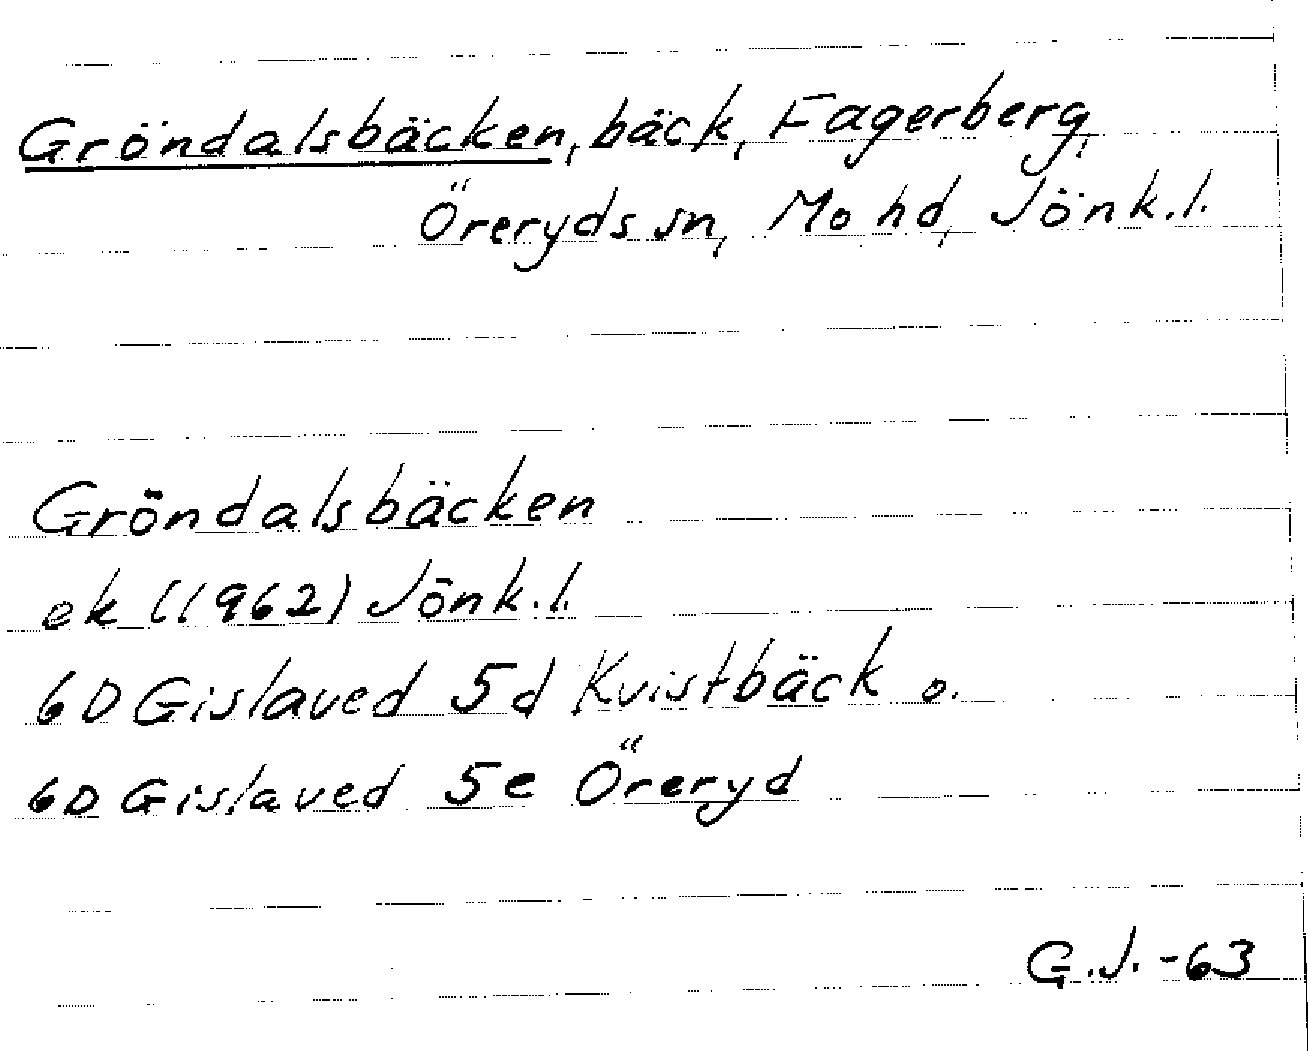 Gröndalsbäcken, bäck, Fagerberg,
Öreryds sn, Mo hd, Jönk.l.
Gröndalsbäcken
ek (1962) Jönk.l.
6D Gislaved 5d Kvistbäck o.
6D Gislaved 5e Öreryd
G.J.-63